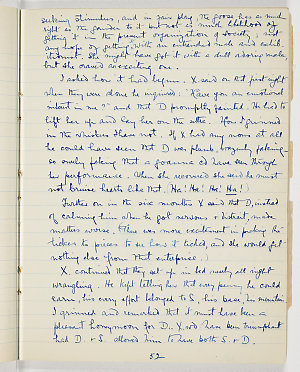 seeking stimulus, and in fair play, the goose has as much
right as the gander to it but not as much likelihood of
getting it in the present organisation of society, not
any hope of getting with an extended male and exhib-
itionist. She might have got it with a dull adoring male,
but she craved an exciting one.
I asked how it had begun. X said on that first night
when they were alone he inquired: "Have you an emotional
interest in me?" and that D promptly fainted. He had to
lift her up and lay her on the settee. How I grinned
in the whiskers I have not. If X had any nous at all
he could have seen that D was plainly, vulgarly faking –
so overly faking that a goanna cd have seen through
her performance. When she recovered she said he must
not bruise hearts like that. Ha! He! He! Ha!)
Further on in the six months X said that D, instead
of calming him when he got nervous & distrait, made
matters worse. (There was more excitement in picking the
tickers to pieces to see how it ticked, and she would get
nothing else from that enterprise.)
X. continued that they sat up in bed nearly all night
wrangling. He kept telling her that every penny he could
earn, his every effort belonged to S, his base, his mountain.
I grinned and remarked that it must have been a
pleasant honeymoon for D. X. wd have been triumphant
had D. & S. allowed him to have both S. & D.
52